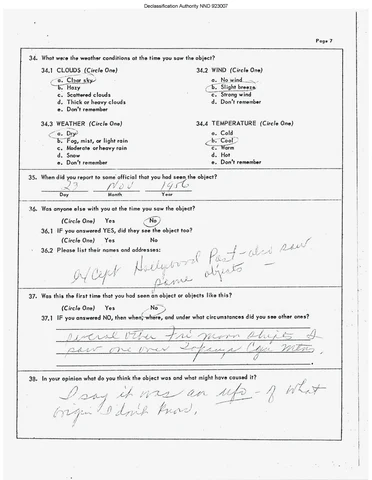 Declassification Authority NND 923007
Page 7
34. What were the weather conditions at the time you saw the object?
34.1 CLOUDS (Circle One)
a. Clear sky
b. Hazy
c. Scattered clouds
d. Thick or heavy clouds
e. Don't remember
34.2 WIND (Circle One)
a. No wind
b. Slight breeze
c. Strong wind
d. Don't remember
34.3 WEATHER (Circle One)
a. Dry
b. Fog, mist, or light rain
c. Moderate or heavy rain
d. Snow
e. Don't remember
34.4 TEMPERATURE (Circle One)
a. Cold
b. Cool
c. Warm
d. Hot
e. Don't remember
35. When did you report to some official that you had seen the object?
23 Nov 1956
Day Month Year
36. Was anyone else with you at the time you saw the object?
(Circle One) Yes No
36.1 IF you answered YES, did they see the object too?
(Circle One) Yes No
36.2 Please list their names and addresses:
except Hollywood Post - also saw
same objects -
37. Was this the first time that you had seen an object or objects like this?
(Circle One) Yes No
37.1 IF you answered NO, then when, where, and under what circumstances did you see other ones?
several other objects I
saw one over
38. In your opinion what do you think the object was and what might have caused it?
I say it was an ufo - of what
origin I don't know.